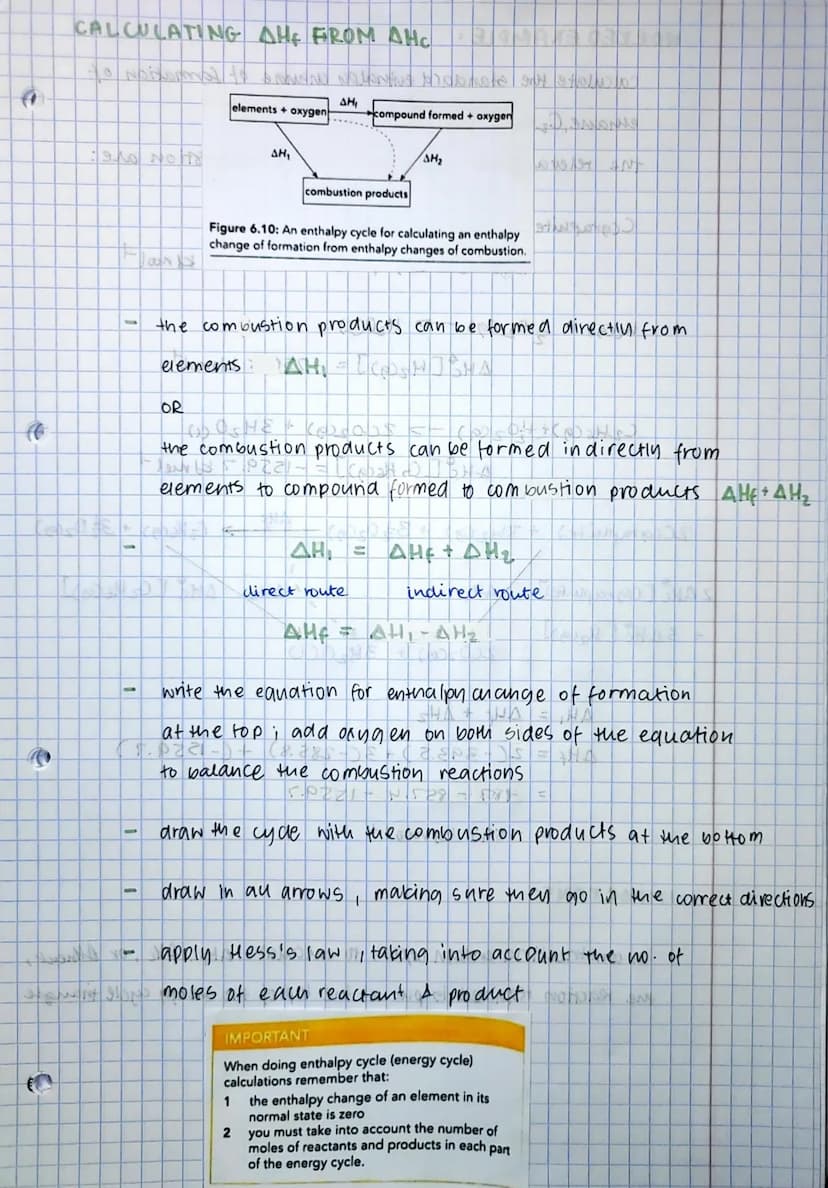 CALCULATING ΔHf FROM ΔHc
elements + oxygen
ΔH₁
compound formed + oxygen
ΔH₁
ΔH₂
combustion products
Figure 6.10: An enthalpy cycle for calculating an enthalpy
change of formation from enthalpy changes of combustion.
- the combustion products can be formed directly from
elements: ΔH₁
OR
the combustion products can be formed indirectly from
elements to compound formed to combustion products ΔHf + ΔH₂
- ΔH₁ = ΔHf + ΔH₂
direct route indirect route
ΔHf = ΔH₁ - ΔH₂
- write the equation for enthalpy change of formation
at the top; add oxygen on both sides of the equation
to balance the combustion reactions
- draw the cycle with the combustion products at the bottom
- draw in all arrows, making sure they go in the correct directions
- apply Hess's law, taking into account the no. of
moles of each reactant & product
IMPORTANT
When doing enthalpy cycle (energy cycle)
calculations remember that:
1 the enthalpy change of an element in its
normal state is zero
2 you must take into account the number of
moles of reactants and products in each part
of the energy cycle.